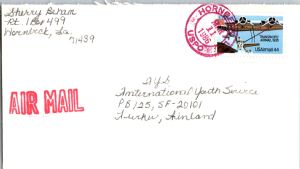 Sherry Beham
Rt. 1 Box 499
Hornbeck, La.
71439
HORNBE
11
1986
USPO
TRANSPACIFIC
AIRMAIL 1935
USAirmail 44
AIR MAIL
IYS
International Youth Service
PB 125, SF-20101
Turku, Finland